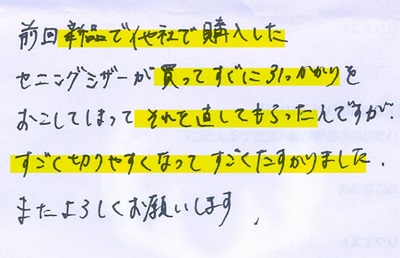 前回新品で他社で購入した
セニングシザーが買ってすぐに引っかかりを
おこしてしまってそれを直してもらったんですが、
すごく切りやすくなってすごくたすかりました.
またよろしくお願いします.